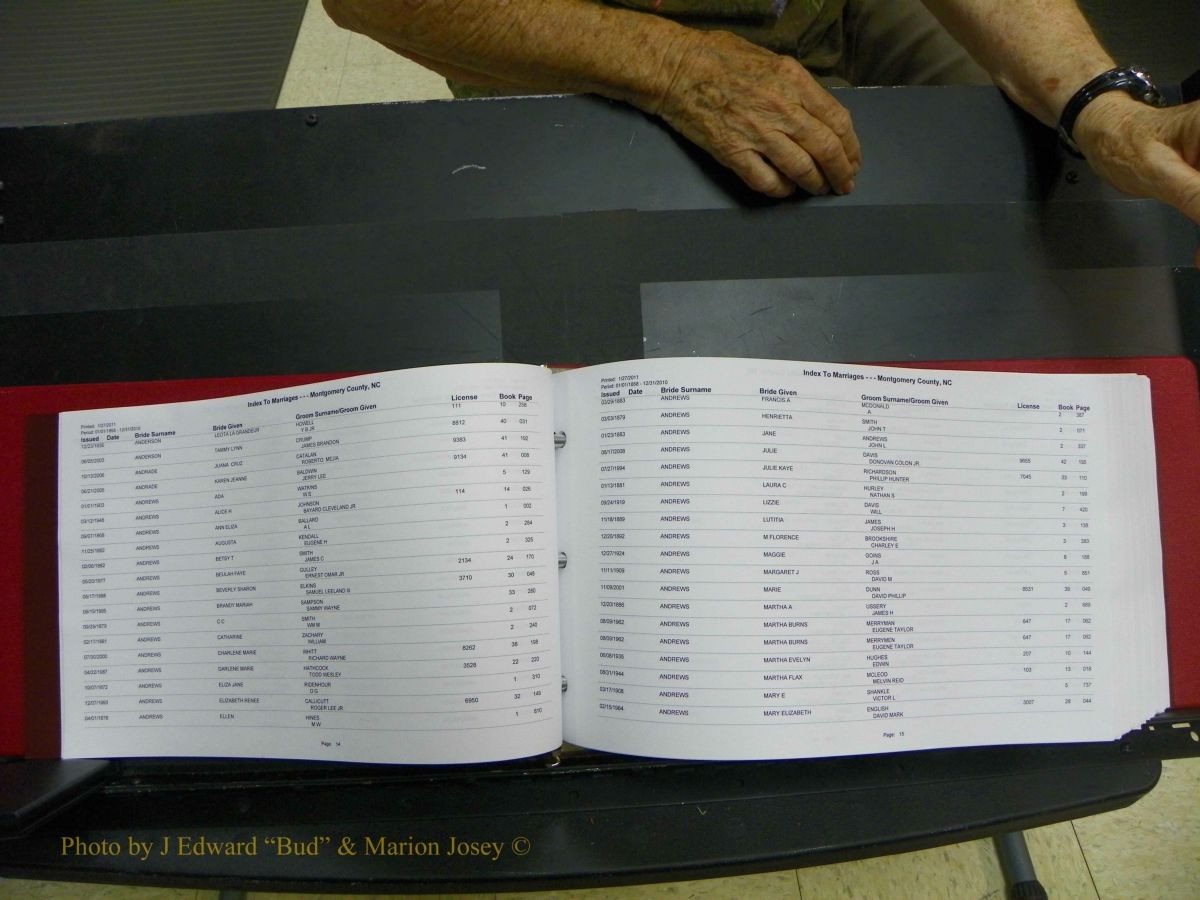 Index To Marriages - - - Montgomery County, NC
Printed: 1/27/2011
Period: 01/01/1868 - 12/31/2010
Issued Date Bride Surname Bride Given Groom Surname/Groom Given License Book Page
ANDERSON LEOTA LA GRANDEUR HOWELL 111 10 256
Y B JR
06/05/2003 ANDERSON TAMMY LYNN CRUMP 8812 40 031
JAMES BRANDON
10/13/2006 ANDRADE JUANA CRUZ CATALAN 9383 41 192
ROBERTO MEJIA
06/21/2005 ANDRADE KAREN JEANNE BALDWIN 9134 41 008
JERRY LEE
01/01/1903 ANDREWS ADA WATKINS 5 129
W S
03/12/1948 ANDREWS ALICE H JOHNSON 114 14 026
BAYARD CLEVELAND JR
ANDREWS ANN ELIZA BALLARD 1 002
A L
ANDREWS AUGUSTA KENDALL 2 284
EUGENE H
ANDREWS BETSY T SMITH 2 325
JAMES C
ANDREWS BEULAH FAYE CULLEY 2134 24 170
ERNEST OMAR JR
ANDREWS BEVERLY SHARON ELKINS 3710 30 048
SAMUEL LEELAND III
ANDREWS BRANDY MARIAH SAMPSON 33 280
SAMMY WAYNE
ANDREWS C C SMITH 2 072
WM M
02/17/1881 ANDREWS CATHARINE ZACHARY 2 240
WILLIAM
07/30/2000 ANDREWS CHARLENE MARIE WHITT 8262 38 198
RICHARD WAYNE
04/22/1987 ANDREWS DARLENE MARIE HATHCOCK 3528 22 220
TODD WESLEY
10/07/1872 ANDREWS ELIZA JANE RIDENHOUR 1 310
D G
12/07/1993 ANDREWS ELIZABETH RENEE CALLICUTT 6950 32 149
ROGER LEE JR
04/01/1876 ANDREWS ELLEN HINES 1 610
M W
Page: 14
Index To Marriages - - - Montgomery County, NC
Printed: 1/27/2011
Period: 01/01/1868 - 12/31/2010
Issued Date Bride Surname Bride Given Groom Surname/Groom Given License Book Page
03/29/1883 ANDREWS FRANCIS A MCDONALD 2 387
A
03/03/1879 ANDREWS HENRIETTA SMITH 2 071
JOHN T
01/23/1883 ANDREWS JANE ANDREWS 2 337
JOHN L
06/17/2008 ANDREWS JULIE DAVIS 9665 42 195
DONOVAN COLON JR
07/27/1994 ANDREWS JULIE KAYE RICHARDSON 7045 33 110
PHILLIP HUNTER
01/13/1881 ANDREWS LAURA C HURLEY 2 199
NATHAN S
09/24/1919 ANDREWS LIZZIE DAVIS 7 420
WILL
11/18/1889 ANDREWS LUTITIA JAMES 3 138
JOSEPH H
12/20/1892 ANDREWS M FLORENCE BROOKSHIRE 3 383
CHARLEY E
12/27/1924 ANDREWS MAGGIE GOINS 8 188
J A
11/11/1909 ANDREWS MARGARET J ROSS 5 851
DAVID M
11/09/2001 ANDREWS MARIE DUNN 8531 39 049
DAVID PHILLIP
12/20/1886 ANDREWS MARTHA A USSERY 2 689
JAMES H
08/09/1962 ANDREWS MARTHA BURNS MERRYMAN 647 17 062
EUGENE TAYLOR
08/09/1962 ANDREWS MARTHA BURNS MERRYMEN 647 17 062
EUGENE TAYLOR
06/08/1935 ANDREWS MARTHA EVELYN HUGHES 207 10 144
EDWIN
08/31/1944 ANDREWS MARTHA FLAX MCLEOD 103 13 018
MELVIN REID
03/17/1908 ANDREWS MARY E SHANKLE 5 737
VICTOR L
02/15/1984 ANDREWS MARY ELIZABETH ENGLISH 3007 28 044
DAVID MARK
Page: 15
Photo by J Edward “Bud” & Marion Josey ©